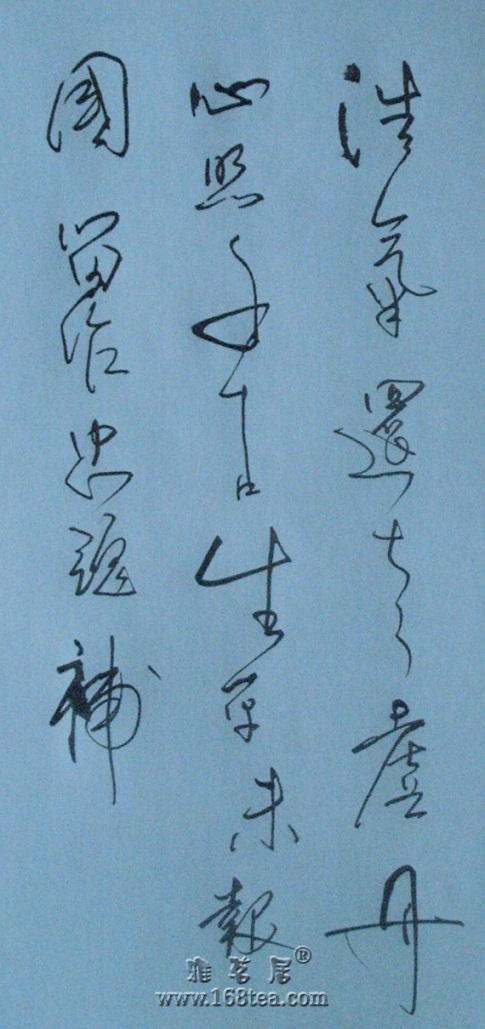 浩氣還太虛丹
心照千古生平未報
國留作忠魂補
雅茗居®
www.168tea.com